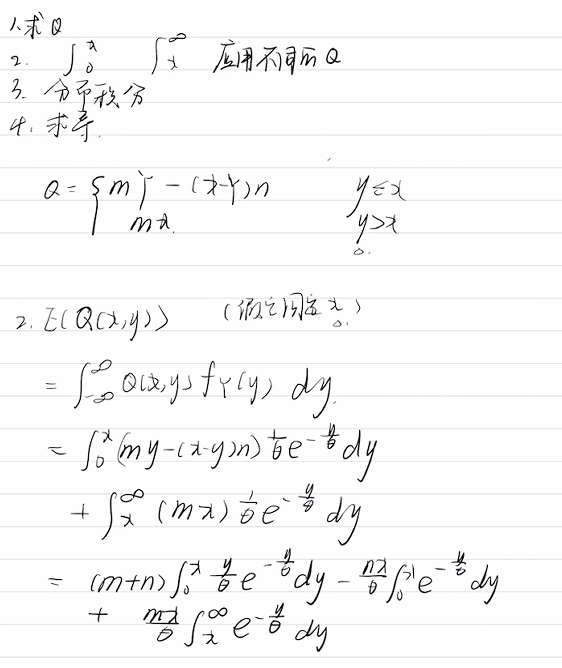 1.求Q
2. ∫₀ˣ ∫ₓ^∞ 应用不同的Q
3. 分部积分
4. 求导.
Q = { mY - (x-Y)n y≤x
mx. y>x
2. E(Q(x,y)) (假定固定x)
= ∫_{-∞}^{∞} Q(x,y) f_Y(y) dy.
= ∫₀ˣ (my-(x-y)n) 1/θ e^{-y/θ} dy
+ ∫ₓ^∞ (mx) 1/θ e^{-y/θ} dy
= (m+n) ∫₀ˣ y/θ e^{-y/θ} dy - nx/θ ∫₀ˣ e^{-y/θ} dy
+ mx/θ ∫ₓ^∞ e^{-y/θ} dy